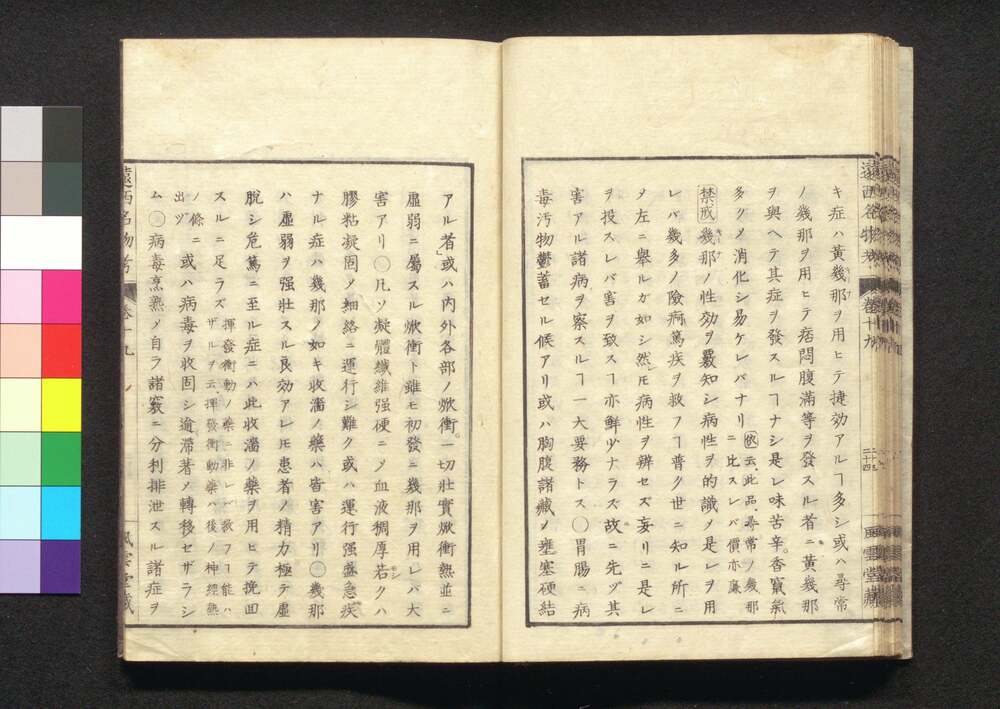 キ症ハ黄幾那ヲ用ヒテ捷効アルヿ多シ或ハ尋常
ノ幾那ヲ用ヒテ痞悶腹滿等ヲ發スル者ニ黄幾那
ヲ與ヘテ其症ヲ發スルヿナシ是レ味苦辛。香竄氣
多クメ消化シ易ケレバナリ 依云此品尋常ノ幾那
ニ比スレバ價亦廉
禁戒 幾那ノ性効ヲ覈知シ病性ヲ的識メ是レヲ用
レバ幾多ノ險病篤疾ヲ救フヿ普ク世ニ知ル所ニ
メ左ニ擧ルガ如シ然レ𪜈病性ヲ辨セズ妄リニ是レ
ヲ投スレバ害ヲ致スヿ亦鮮少ナラズ故ニ先ヅ其
害アル諸病ヲ察スルヿ一大要務トス〇胃腸ニ病
毒汚物鬱蓄セル候アリ或ハ胸腹諸藏ノ壅塞硬結
遠西名物考 卷十九 二十四 風雲堂藏
アル者」或ハ内外各部ノ焮衝。一切壯實焮衝熱並ニ
虚弱ニ屬スル焮衝ト雖モ初發ニ幾那ヲ用レバ大
害アリ〇凡ソ凝體纖維强硬ニメ血液稠厚若クハ
膠粘凝固メ細絡ニ運行シ難ク或ハ運行强盛急疾
ナル症ハ幾那ノ如キ收濇ノ藥ハ皆害アリ〇幾那
ハ虚弱ヲ强壯スル良効アレ𪜈患者ノ精力極テ虚
脱シ危篤ニ至ル症ニハ此收濇ノ藥ヲ用ヒテ挽回
スルニ足ラズ 揮發衝動ノ藥ニ非レバ救フヿ能ハ
ザルヲ云、揮發衝動藥ハ後ノ神經熱
ノ條ニ
出ヅ 或ハ病毒ヲ收固シ遊滯著メ轉移セザラシ
ム〇病毒烹熟メ自ラ諸竅ニ分利排泄スル諸症ヲ
遠西名物考 卷十九 風雲堂藏